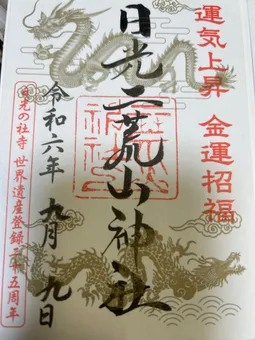 運気上昇 金運招福
日光二荒山神社
令和六年 九月 九日
日光の社寺 世界遺産登録二十五周年